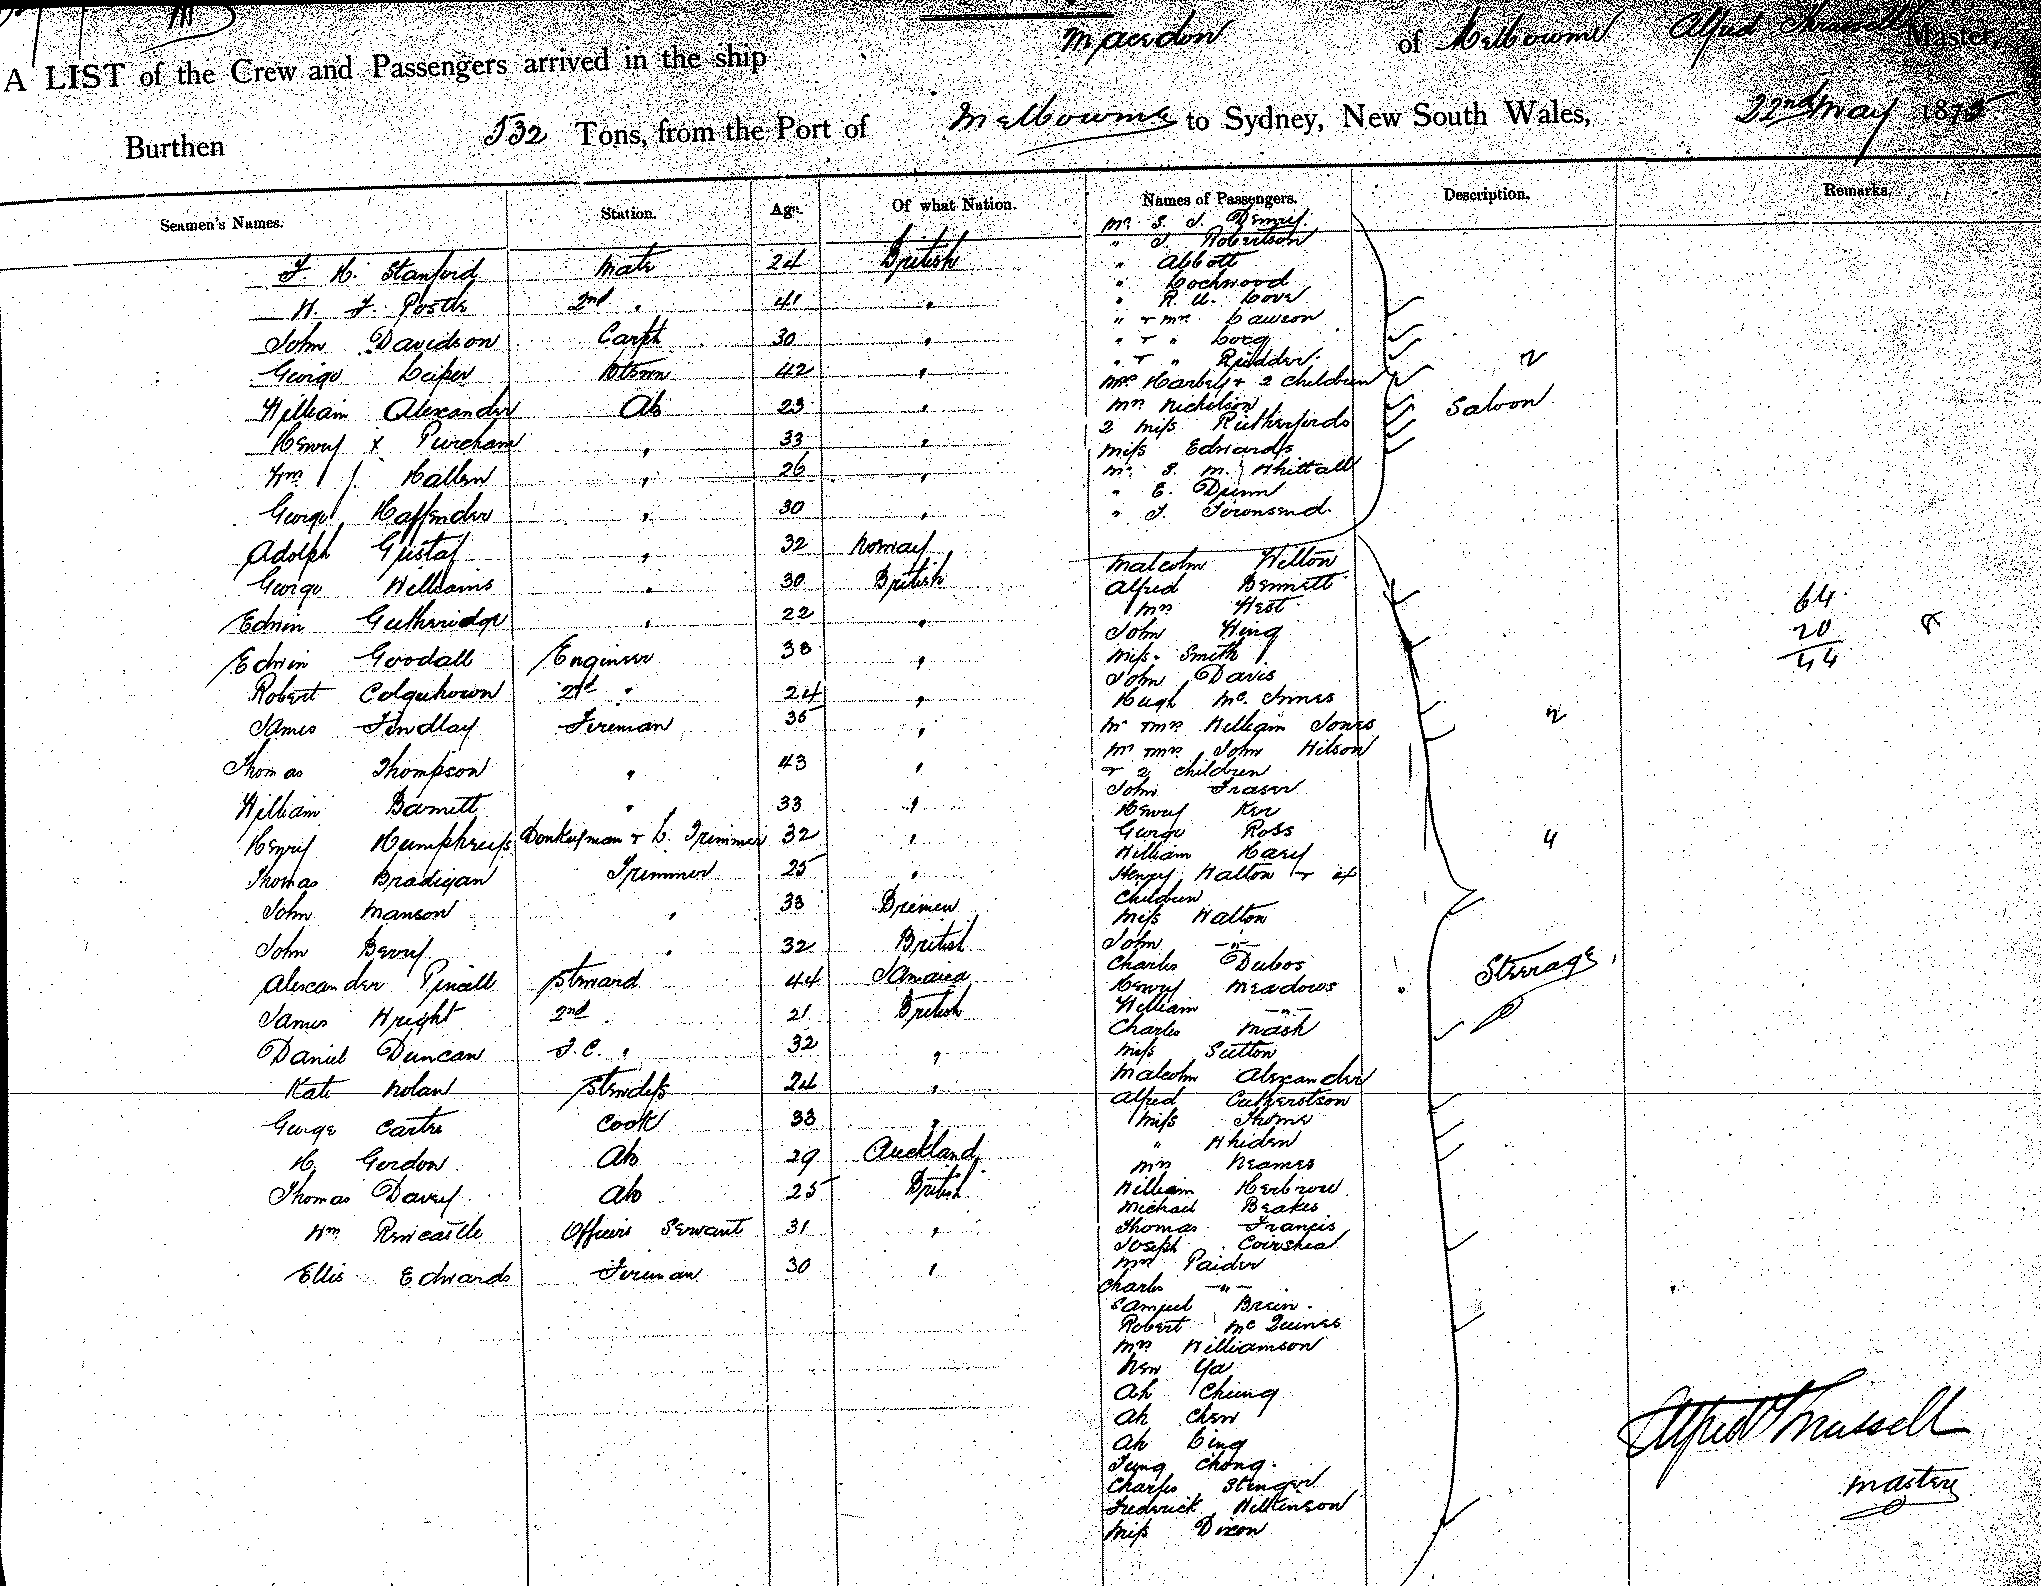 Macedon of Melbourne Alfred Trussell Master,
A LIST of the Crew and Passengers arrived in the ship
Burthen 532 Tons, from the Port of Melbourne to Sydney, New South Wales, 22nd May 1875
Seamen's Names. Station. Age. Of what Nation. Names of Passengers. Description. Remarks.
J. H. Stanford Mate 24 British
H. J. 2nd " 41 "
John Davidson Carptr 30 "
George Leiper 42 "
William Alexander Ab 23 "
Henry x Purcham " 33 "
Wm Hallen " 26 "
George Haffender " 30 "
Adolph Gustaf " 32 Norway
George Williams " 30 British
Edwin Gutheridge " 22 "
Edwin Goodall Engineer 38 "
Robert Colquhoun 2nd " 24 "
James Findlay Fireman 35 "
Thomas Thompson " 43 "
William Barnett " 33 "
Henry Humphreys Donkeyman & L. Trimmer 32 "
Thomas Bradigan Trimmer 25 "
John Manson " 33 Bremen
John Berry " 32 British
Alexander Pinell Steward 44 Jamaica
James Wright 2nd 21 British
Daniel Duncan F. C. " 32 "
Kate Nolan Stewdess 24 "
George Carter Cook 33 "
H. Gordon Ab 29 Auckland
Thomas Davey Ab 25 British
Wm Rencastle Officers Servant 31 "
Ellis Edwards Fireman 30 "
Mr. S. J.
" J. Robertson
" Abbott
" Lockwood
" R. U. Love
" & Mrs. Lawson
" & "
" & " Rudder
Mrs Harbey & 2 children
Mrs Nicholson
2 Miss Rutherfords
Miss Edwards
Mr. S. M. Whittall
" E. Dunn
" J. Townsend
Saloon
2
Malcolm Welton
Alfred Bennett
Mrs West
John Wing
Miss Smith
John Davis
Hugh Mc. Innes
Mr & Mrs William Jones
Mr & Mrs John Wilson
& 2 children
John Fraser
Henry Ker
George Ross
William Hary
Henry Walton & 4
Children
Miss Walton
John —"—
Charles Dubos
Henry Meadows
William —"—
Charles Mash
Miss Sutton
Malcolm Alexander
Alfred Cutherstson
Miss Thorne
" Whiden
Mrs Neames
William Herbrow
Michael Beakes
Thomas Francis
Joseph
Mrs Paider
Charles —"—
Samuel Brein
Robert
Mrs Williamson
Ya
Ah Chung
Ah Chew
Ah Ling
Tung Chong
Charles Stenger
Frederick Wilkinson
Miss Dixon
2
4
Steerage
64
20
44
8
Alfred Trussell
Master